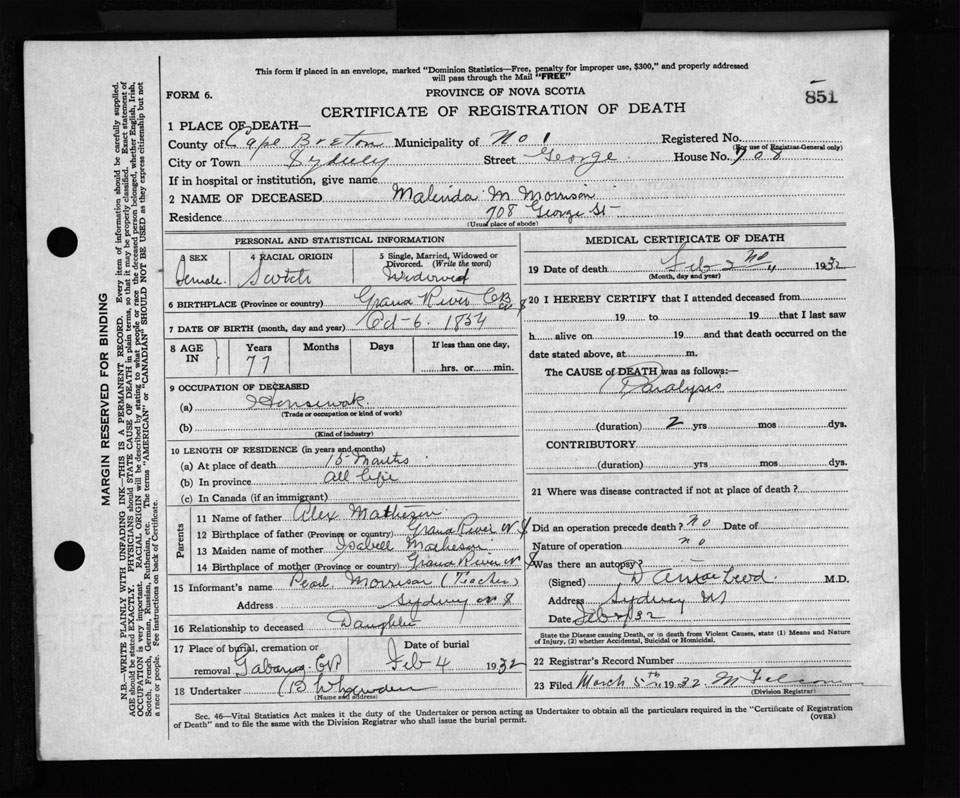 This form if placed in an envelope, marked "Dominion Statistics—Free, penalty for improper use, $300," and properly addressed
will pass through the Mail "FREE"
FORM 6.
PROVINCE OF NOVA SCOTIA
851
CERTIFICATE OF REGISTRATION OF DEATH
1 PLACE OF DEATH—
County of Cape Breton Municipality of No 1 Registered No.
(For use of Registrar-General only)
City or Town Sydney Street George House No. 708
If in hospital or institution, give name
2 NAME OF DECEASED Malinda M Morrison
Residence 708 George St
(Usual place of abode)
PERSONAL AND STATISTICAL INFORMATION
3 SEX
Female
4 RACIAL ORIGIN
Scotch
5 Single, Married, Widowed or Divorced. (Write the word)
Widowed
6 BIRTHPLACE (Province or country) Grand River CB NS
7 DATE OF BIRTH (month, day and year) Oct-6. 1854
8 AGE IN Years Months Days If less than one day,
77 hrs. or min.
9 OCCUPATION OF DECEASED
(a) Housework
(Trade or occupation or kind of work)
(b)
(Kind of industry)
10 LENGTH OF RESIDENCE (in years and months)
(a) At place of death 15 Months
(b) In province all life
(c) In Canada (if an immigrant)
Parents
11 Name of father Alex Matheson
12 Birthplace of father (Province or country) Grand River N S
13 Maiden name of mother Isabell Matheson
14 Birthplace of mother (Province or country) Grand River N S
15 Informant's name Pearl Morrison (Teacher)
Address Sydney N S
16 Relationship to deceased Daughter
17 Place of burial, cremation or removal Gabarus CB
Date of burial
Feb 4 1932
18 Undertaker
(Name and address)
MEDICAL CERTIFICATE OF DEATH
19 Date of death Feb 2 1932
(Month, day and year)
20 I HEREBY CERTIFY that I attended deceased from
19 to 19 that I last saw
h alive on 19 and that death occurred on the
date stated above, at m.
The CAUSE of DEATH was as follows:—
Paralysis
(duration) 2 yrs mos dys.
CONTRIBUTORY
(duration) yrs mos dys.
21 Where was disease contracted if not at place of death?
Did an operation precede death? no Date of
Nature of operation no
Was there an autopsy?
(Signed) M.D.
Address Sydney NS
Date
State the Disease causing Death, or in death from Violent Causes, state (1) Means and Nature of Injury, (2) whether Accidental, Suicidal or Homicidal.
22 Registrar's Record Number
23 Filed March 5th 1932
(Division Registrar)
Sec. 46—Vital Statistics Act makes it the duty of the Undertaker or person acting as Undertaker to obtain all the particulars required in the "Certificate of Registration
of Death" and to file the same with the Division Registrar who shall issue the burial permit.
(OVER)
MARGIN RESERVED FOR BINDING
N.B.—WRITE PLAINLY WITH UNFADING INK—THIS IS A PERMANENT RECORD. Every item of information should be carefully supplied.
AGE should be stated EXACTLY. PHYSICIANS should STATE CAUSE OF DEATH in plain terms, so that it may be properly classified. Exact statement of
OCCUPATION is very important. RACIAL ORIGIN will be described by stating to what people or race the deceased person belonged, whether English, Irish,
Scotch, French, German, Russian, Ruthenian, etc. The terms "AMERICAN" or "CANADIAN" SHOULD NOT BE USED as they express citizenship but not
a race or people. See instructions on back of Certificate.